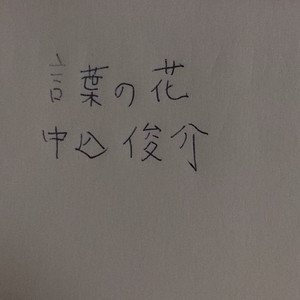 言葉の花
中込俊介